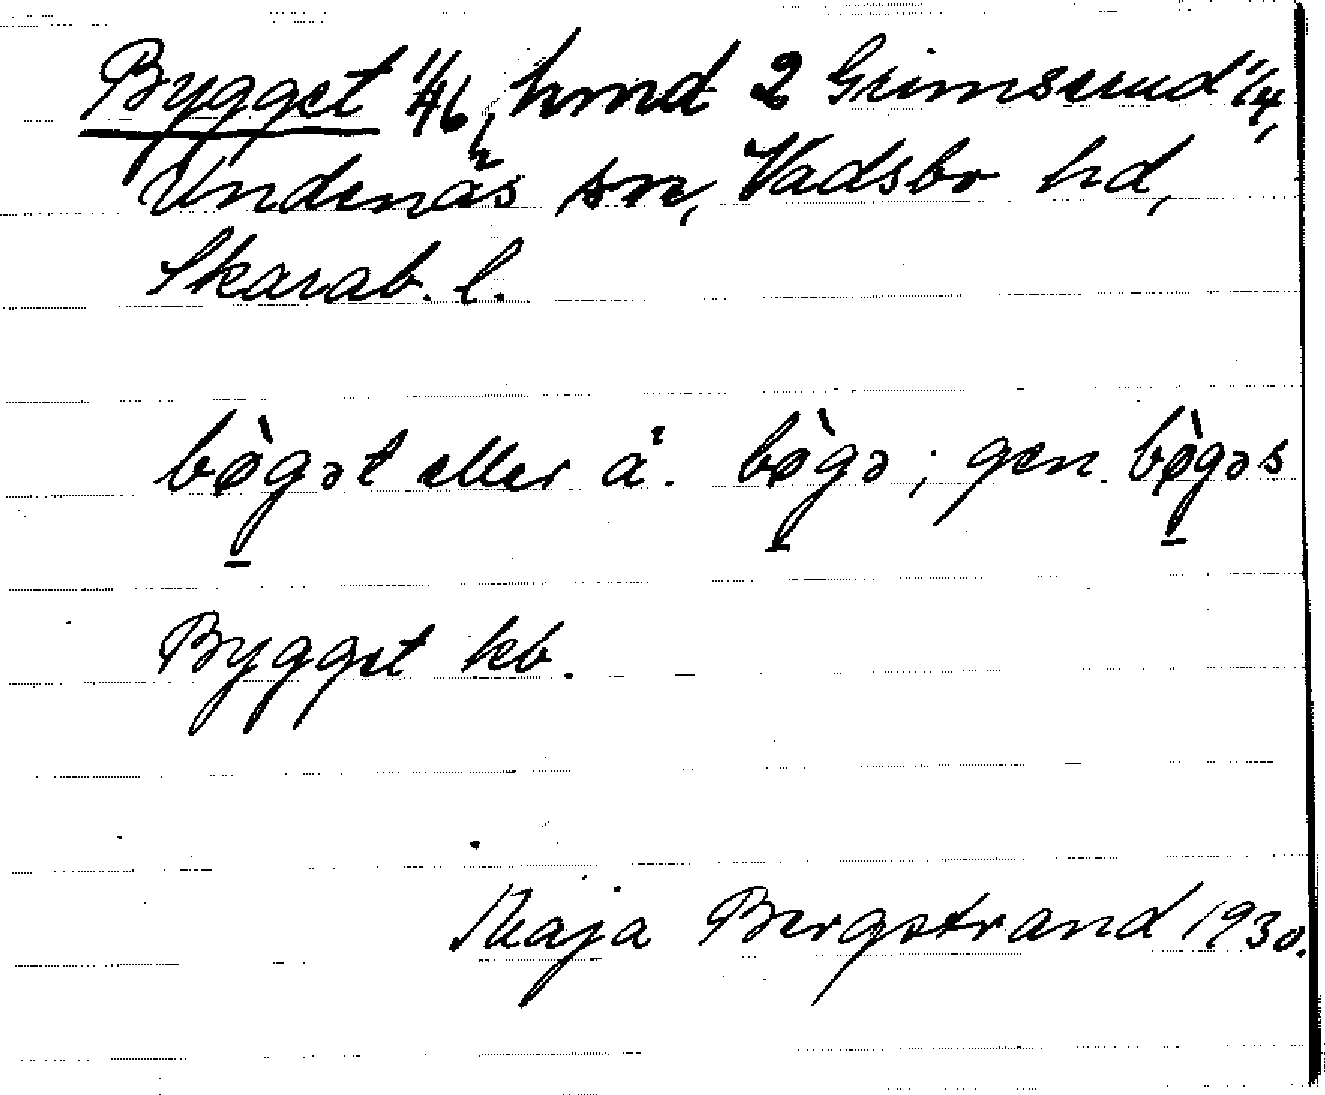 Bygget 1/16, hmd 2 Grimserud 1/4,
Undenäs sn, Vadsbo hd,
Skarab. l.
bø̀gət eller ä. bø̀gə; gen. bø̀gəs
Bygget kb.
Maja Bergstrand 1930.